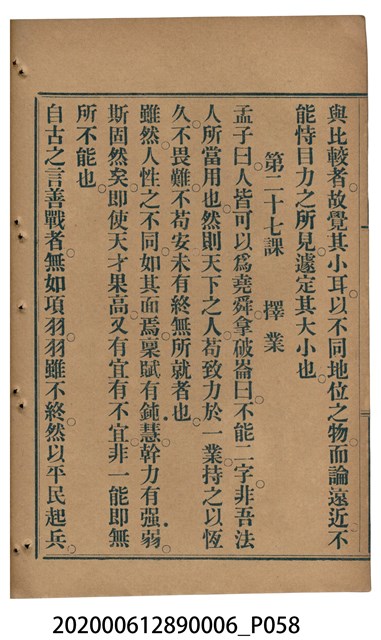 與比較者故覺其小耳以不同地位之物而論遠近不
能恃目力之所見遽定其大小也
第二十七課　擇業
孟子曰人皆可以爲堯舜拿破崙曰不能二字非吾法
人所當用也然則天下之人苟致力於一業持之以恆
久不畏難不苟安未有終無所就者也
雖然人性之不同如其面焉稟賦有鈍慧幹力有强弱
斯固然矣即使天才果高又有宜有不宜非一能即無
所不能也
自古之言善戰者無如項羽羽雖不終然以平民起兵
202000612890006_P058